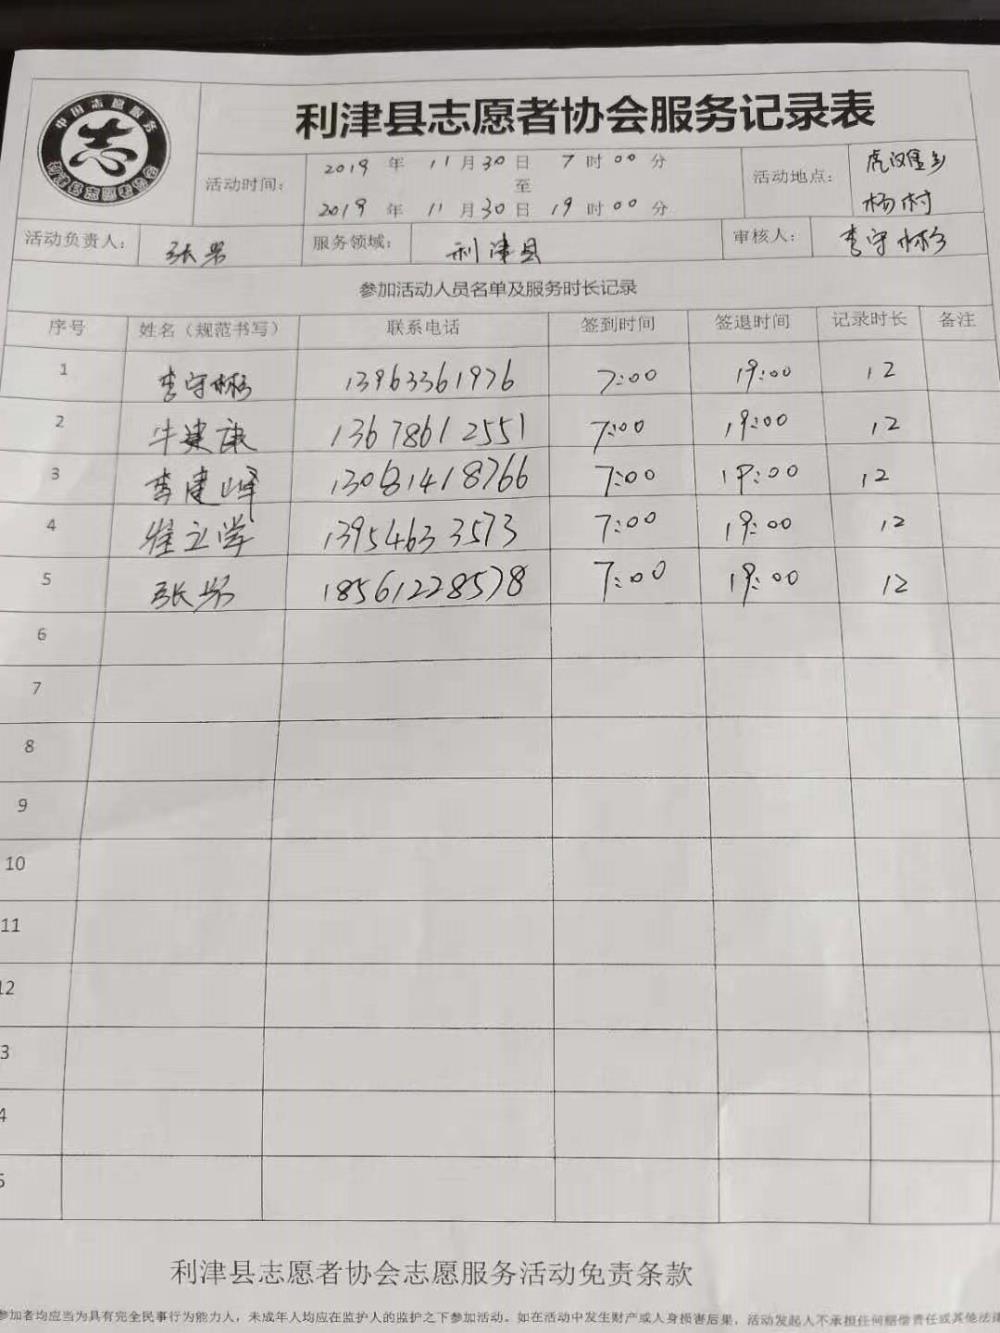 中国志愿服务
志
利津县志愿者协会服务记录表
活动时间： 2019 年 11 月 30 日 7 时 00 分
至
2019 年 11 月 30 日 19 时 00 分
活动地点： 虎滩 乡
杨村
活动负责人： 张 服务领域： 利津县 审核人： 李守彬
参加活动人员名单及服务时长记录
序号 姓名（规范书写） 联系电话 签到时间 签退时间 记录时长 备注
1 李守彬 13963361976 7:00 19:00 12
2 牛建康 13678612551 7:00 19:00 12
3 李建峰 7:00 19:00 12
4 崔立学 13954633573 7:00 19:00 12
5 张 18561228578 7:00 19:00 12
6
7
8
9
10
11
12
3
4
5
利津县志愿者协会志愿服务活动免责条款
参加者均应当为具有完全民事行为能力人，未成年人均应在监护人的监护之下参加活动。如在活动中发生财产或人身损害后果，活动发起人不承担任何赔偿责任或其他法